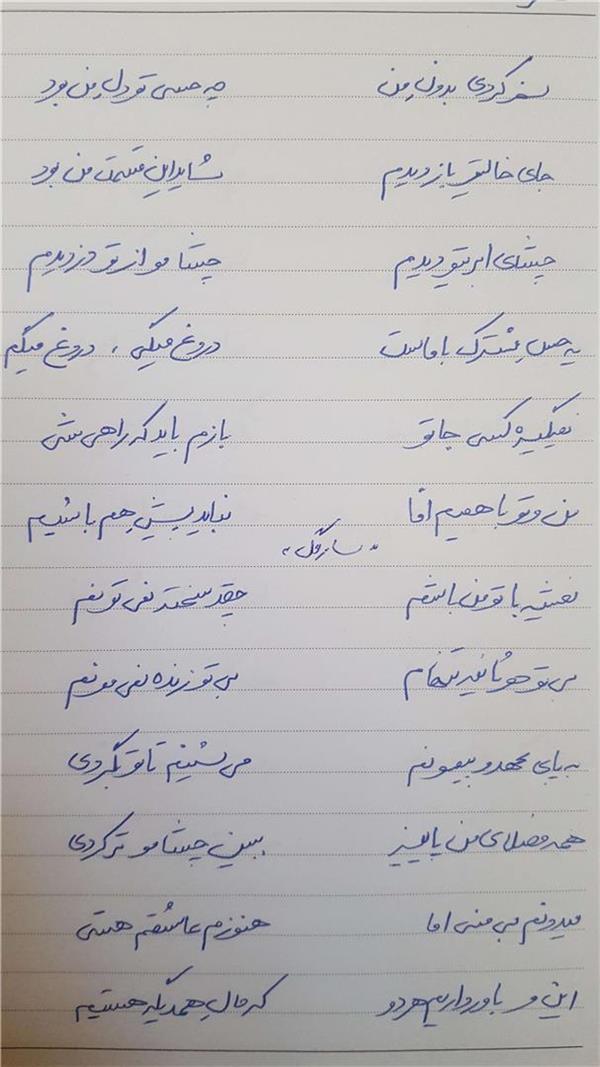 سفر کردی بدون من چه حسی تو دل من بود
جای خالیتو باز دیدم شاید این قسمت من بود
چشای ابریتو دیدم چشامو از تو دزدیدم
یه حس مشترک با ماست دروغ میگی ، دروغ میگم
نمیگیره کسی جاتو بازم باید که راهی شی
من و تو با همیم امّا نباید پیش هم باشیم
نمیشه با تو من باشم چقد سخته نمی تونم
بی تو هر ثانیه تنهام بی تو زنده نمی مونم
به پای عهدو پیمونم می شینم تا تو برگردی
همه فصلای من پاییز ببین چشامو تر کردی
میدونم بی منی اما هنوزم عاشقم هستی
این و باور داریم هردو که مال همدیگه هستیم